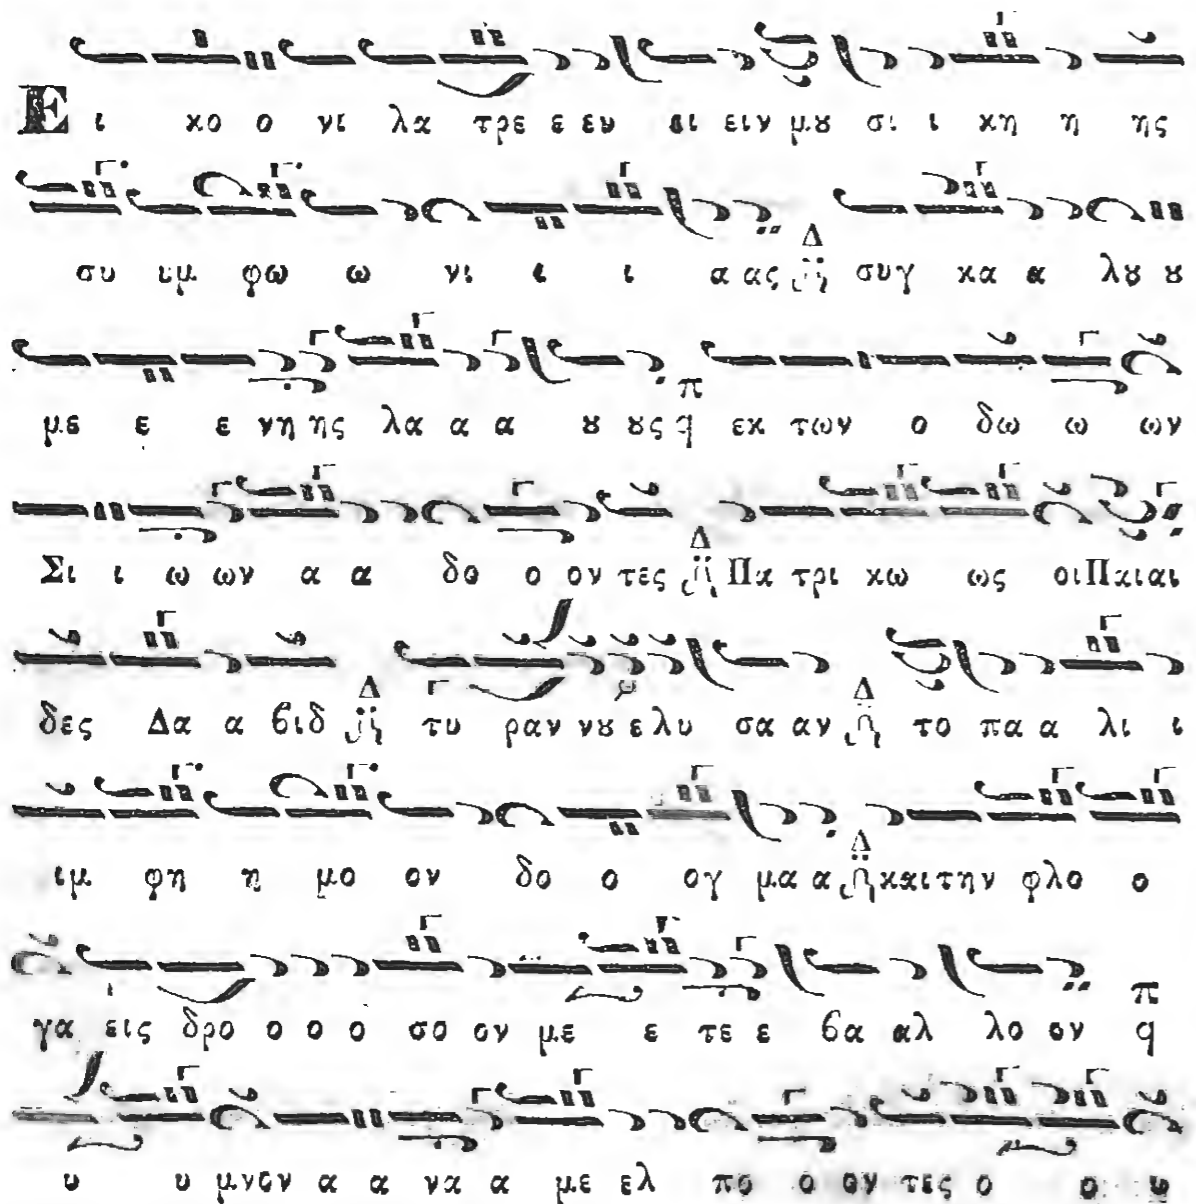 Ει κο ο νι λα τρε ε εν ει ειν μȣ σι ι κη η ης
συ ιμ φω ω νι ι ι α ας Δ συγ κα α λȣ ȣ
με ε ε νη ης λα α α ȣ ȣς π q εκ των ο δω ω ων
Σι ι ω ων α α δο ο ον τες Δ Πα τρι κω ως οι Παι αι
δες Δα α βιδ Δ τυ ραν νȣ ε λυ σα αν Δ το πα α λι ι
ιμ φη η μο ον δο ο ογ μα α Δ και την φλο ο
γα εις δρο ο ο ο σο ον με ε τε ε βα αλ λο ον π q
υ υ μνον α α να α με ελ πο ο ον τες ο ο ȣ